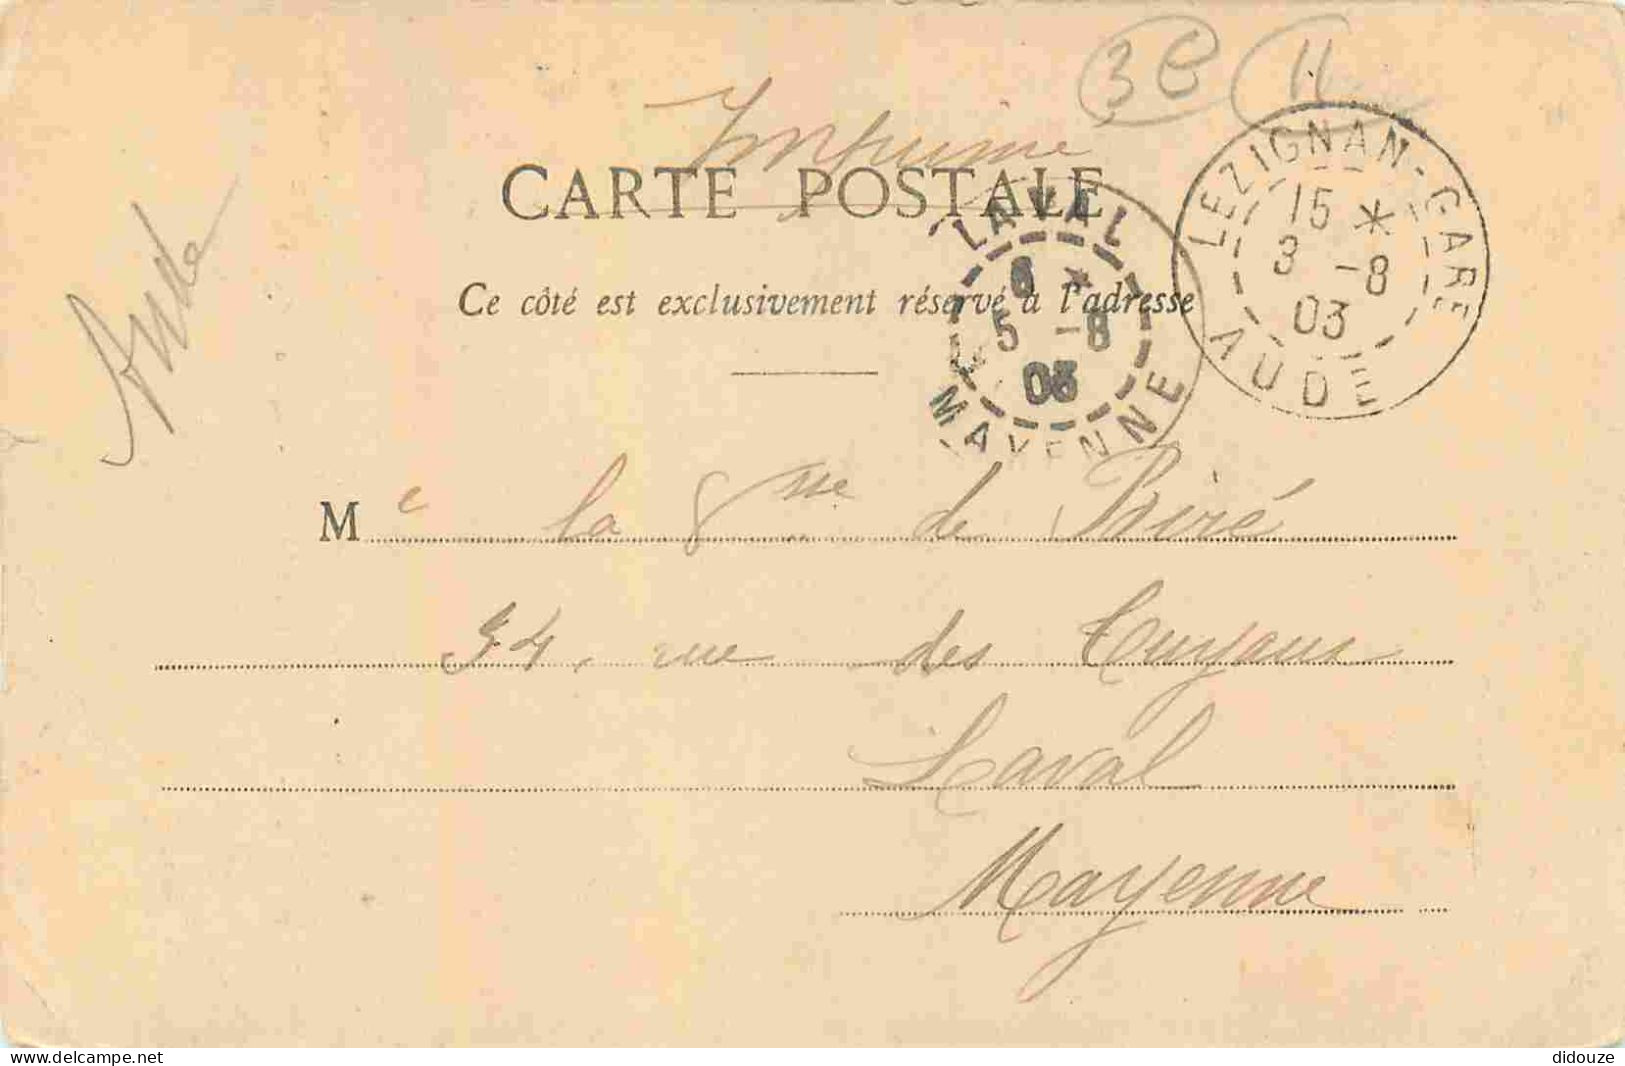 3e 11
Imprimé
CARTE POSTALE
LEZIGNAN-GARE
15 *
3 -8
03
AUDE
LAVAL
6 *
5 -8
03
MAYENNE
Aude
Ce côté est exclusivement réservé à l'adresse
Me la de
34, rue des Tuyaux
Laval
Mayenne
www.delcampe.net
didouze